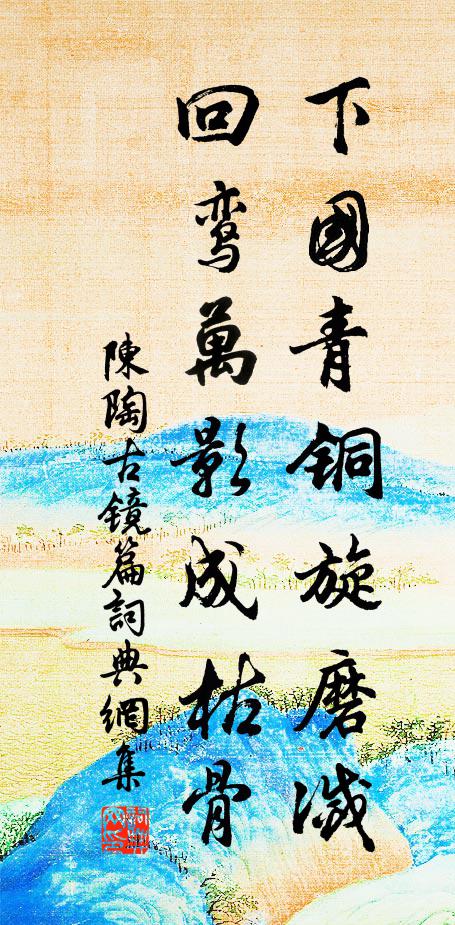 下國青铜旋磨滅
回鸾萬影成枯骨
陳陶古镜篇詞典網集